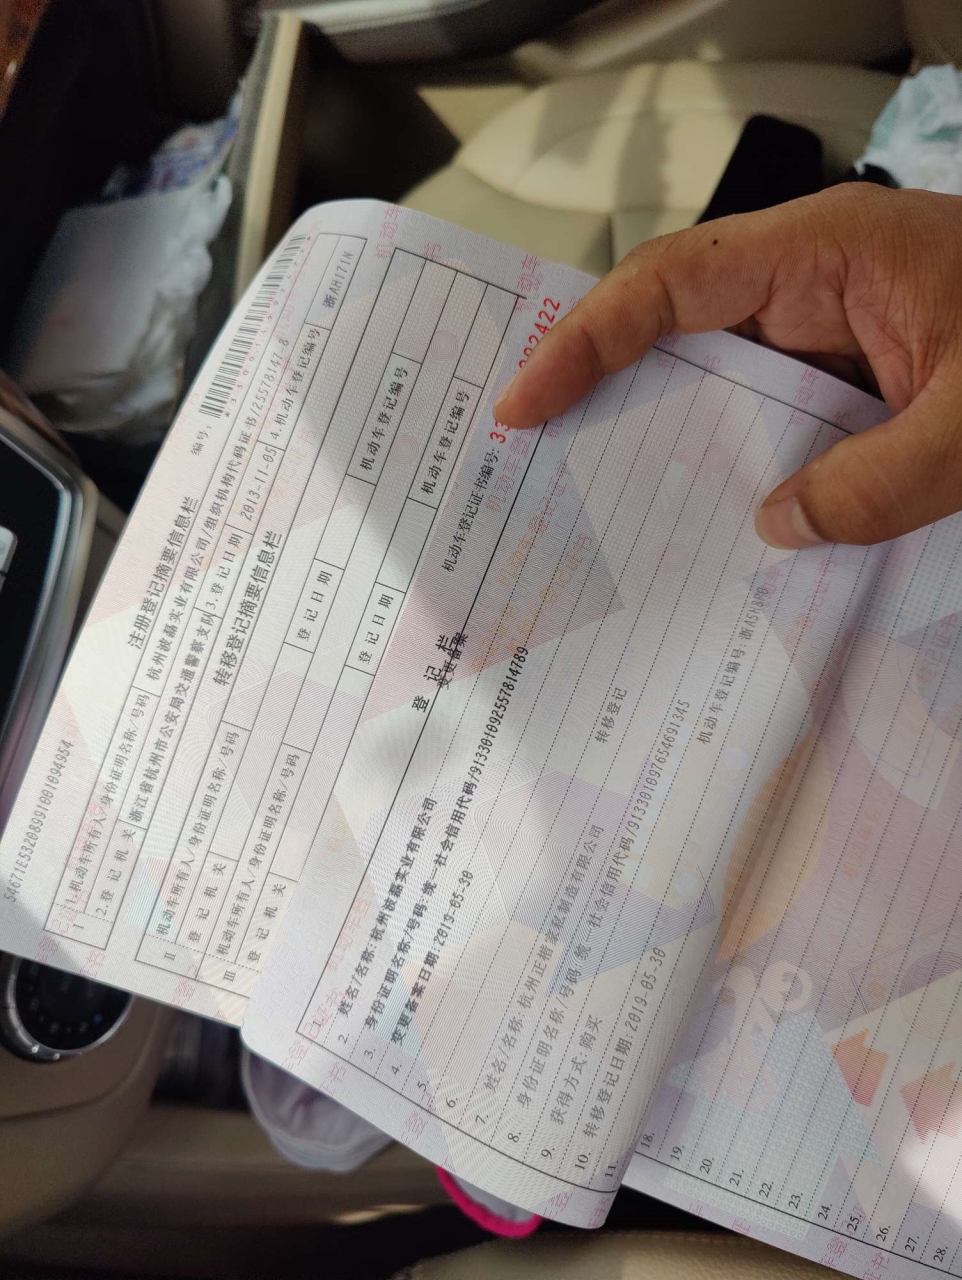 54671E5320899100109​4954
编号:
注册登记摘要信息栏
I 1.机动车所有人/身份证明名称/号码 杭州波磊实业有限公司/组织机构代码证书/25578147-8
2.登记机关 浙江省杭州市公安局交通警察支队 3.登记日期 2013-11-05 4.机动车登记编号 浙AH171N
转移登记摘要信息栏
II 机动车所有人/身份证明名称/号码
登记机关 登记日期 机动车登记编号
III 机动车所有人/身份证明名称/号码
登记机关 登记日期 机动车登记编号
机动车登记证书编号:
登记栏
1. 变更备案
2. 姓名/名称:杭州波磊实业有限公司
3. 身份证明名称/号码:统一社会信用代码/913301092557814789
4. 变更备案日期:2019-05-30
5.
6. 转移登记
7. 姓名/名称:杭州正楷家私制造有限公司
8. 身份证明名称/号码:统一社会信用代码/913301097654691345
9. 获得方式:购买 机动车登记编号:
10. 转移登记日期:2019-05-30
11
18.
19.
20.
21.
22.
23.
24.
25.
26.
27.
28.